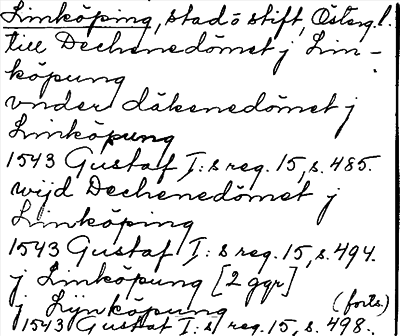 Linköping, stad o stift, Österg.l.
till Dechenedömet j Lin-
köpung
vnder däkenedömet j
Linköpung
1543 Gustaf I:s reg. 15, s. 485.
wijd Dechenedömet j
Linköping
1543 Gustaf I:s reg. 15, s. 494.
j Linköpung [2 ggr]
j Lijnköpung (forts.)
1543 Gustaf I:s reg. 15, s. 498.